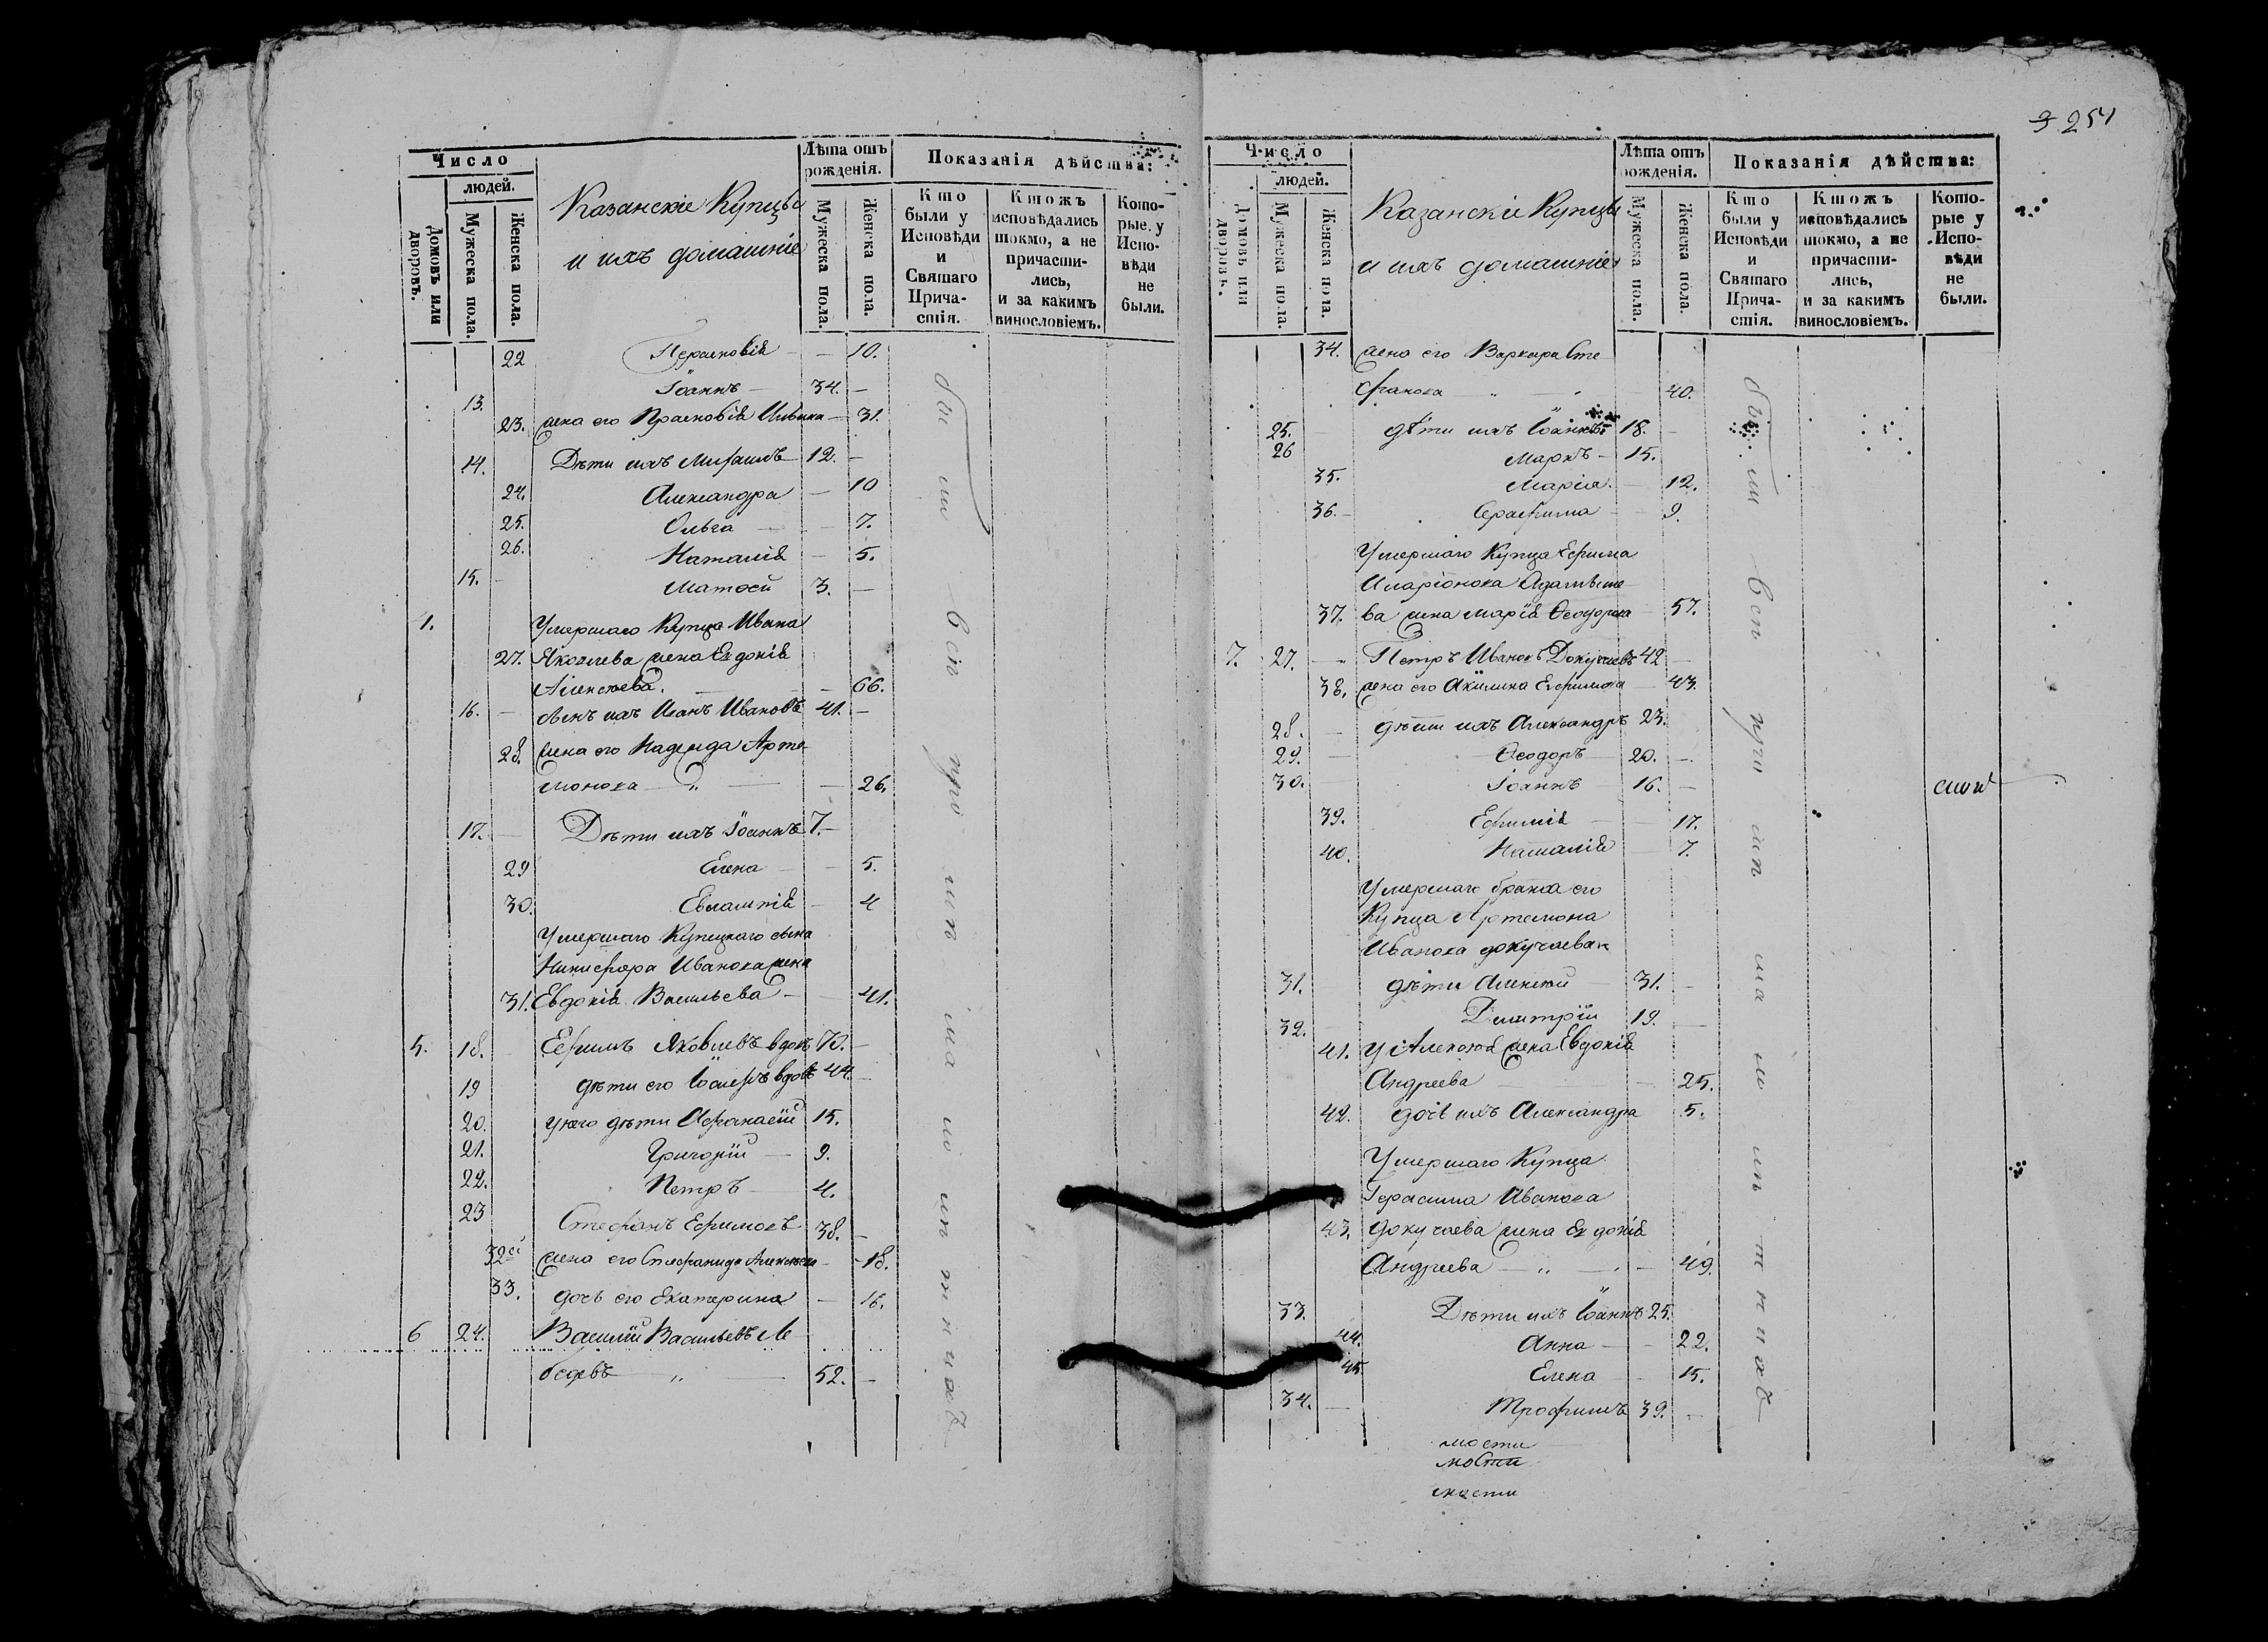 Число
людей.
Домовъ или дворовъ.
Мужеска пола.
Женска пола.
Казанскіе Купцы
и ихъ домашніе
Лѣта отъ рожденія.
Мужеска пола.
Женска пола.
Показанія дѣйства:
Кто были у Исповѣди и Святаго Причастія.
Ктожъ исповѣдались токмо, а не причастились, и за какимъ винословіемъ.
Которые у Исповѣди не были.
22 Парасковія — 10.
13. Іоаннъ — 34. —
23. жена его Прасковія Ильина — 31.
14. Дѣти ихъ Михаилъ 12. —
24. Александра — 10
25. Ольга — 7.
26. Наталія — 5.
15. — Матѳей 3. —
4. Умершаго Купца Ивана
27. Яковлева жена Евдокія
Алексѣева. — 66.
16. — сынъ ихъ Иванъ Ивановъ 41. —
28. жена его Надежда Арте-
монова „ — 26.
17. — Дѣти ихъ Іоаннъ 7. —
29 Елена — 5.
30. Евлампія — 4
Умершаго Купецкаго сына
Никифора Иванова жена
31. Евдокія Васильева — 41.
5. 18. Ефимъ Яковлевъ вдовъ 70. —
19 дѣти его Іосифъ вдовъ 44. —
20. у него дѣти Афанасій 15.
21. Григорій — 9.
22. Петръ — 4.
23 Стефанъ Ефимовъ 38. —
32 жена его Стефанида Алексѣева — 18.
33. дочь его Екатерина — 16.
6 24. Василій Васильевъ Ле-
бедевъ „ — 52. —
были всѣ у
3 251
Число
людей.
Домовъ или дворовъ.
Мужеска пола.
Женска пола.
Казанскіе Купцы
и ихъ домашніе
Лѣта отъ рожденія.
Мужеска пола.
Женска пола.
Показанія дѣйства:
Кто были у Исповѣди и Святаго Причастія.
Ктожъ исповѣдались токмо, а не причастились, и за какимъ винословіемъ.
Которые у Исповѣди не были.
34. жена его Варвара Сте-
фанова „ — 40.
25. — дѣти ихъ Іоаннъ 18. —
26 Маркъ — 15.
35. Марія — 12.
36. — Серафима — 9.
Умершаго Купца Ефима
Иларіонова
37. ва жена Марія Ѳеодорова 57.
7. 27. — „ Петръ Ивановъ Докучаевъ 42 —
38. жена его Акилина Ефимова — 43.
28. — дѣти ихъ Александръ 23.
29. — Ѳеодоръ — 20. —
30. Іоаннъ 16. —
39. Ефимія — 17.
40. Наталія — 7.
Умершаго брата его
Купца Артемона
Иванова Докучаева
31. дѣти Алексѣй — 31. —
32. — Димитрій 19. —
41. у Алексѣя жена Евдокія
Андреева — 25.
42. дочь ихъ Александра 5.
Умершаго Купца
Герасима Иванова
43. Докучаева жена Евдокія
Андреева — „ — 49.
33. Дѣти ихъ Іоаннъ 25.
44. Анна — 22.
45. Елена — 15.
34. — Трофимъ 39. —
мости
мости